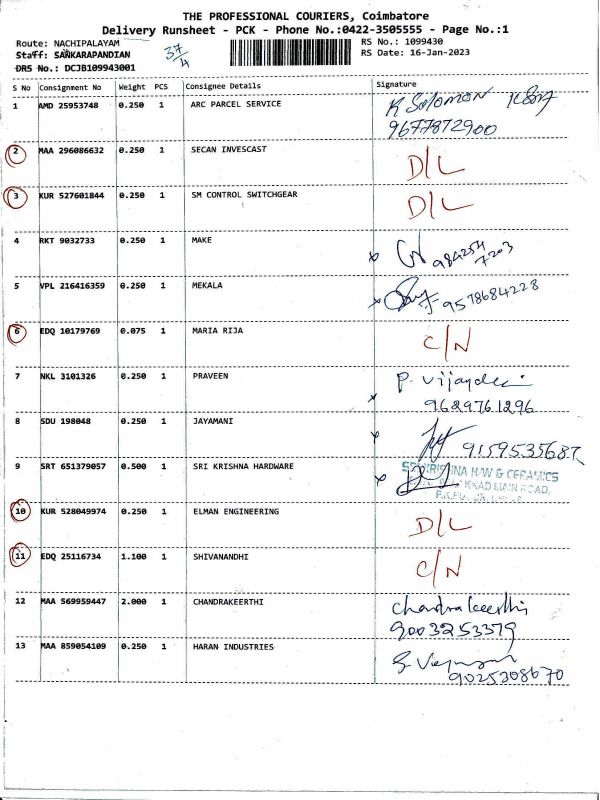 THE PROFESSIONAL COURIERS, Coimbatore
Delivery Runsheet - PCK - Phone No.:0422-3505555 - Page No.:1
Route: NACHIPALAYAM
37/4
RS No.: 1099430
Staff: SANKARAPANDIAN
RS Date: 16-Jan-2023
DRS No.: DCJB109943001
S No Consignment No Weight PCS Consignee Details Signature
1 AMD 25953748 0.250 1 ARC PARCEL SERVICE K Solomon
9677872900
2 MAA 296086632 0.250 1 SECAN INVESCAST D/L
3 KUR 527601844 0.250 1 SM CONTROL SWITCHGEAR D/L
4 RKT 9032733 0.250 1 MAKE x 984254
7203
5 VPL 216416359 0.250 1 MEKALA x 9578684228
6 EDQ 10179769 0.075 1 MARIA RIJA C/N
7 NKL 3101326 0.250 1 PRAVEEN P. 
x 9629761296
8 SDU 198048 0.250 1 JAYAMANI x
9 SRT 651379057 0.500 1 SRI KRISHNA HARDWARE x SRI KRISHNA H/W & CERAMICS
MAIN ROAD,
10 KUR 528049974 0.250 1 ELMAN ENGINEERING D/L
11 EDQ 25116734 1.100 1 SHIVANANDHI C/N
12 MAA 569959447 2.000 1 CHANDRAKEERTHI Chandrakeerthi
9003253379
13 MAA 859054109 0.250 1 HARAN INDUSTRIES
9025308670